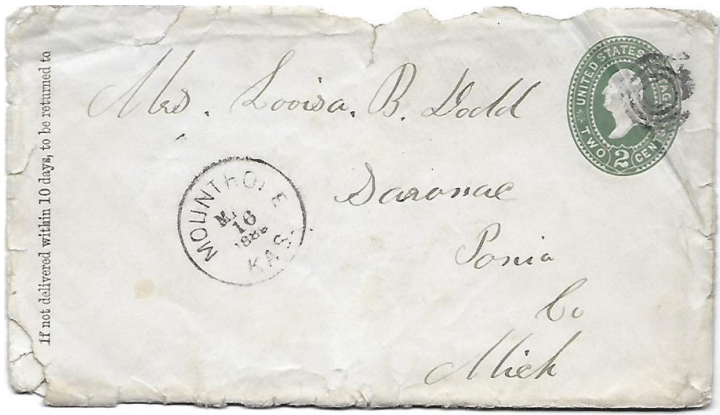 If not delivered within 10 days, to be returned to
UNITED STATES
TWO 2 CENTS
Mrs. Lovisa. B. Dodd
Saronac
Ionia
Co
Mich
MOUNT HOPE
16
KAS.